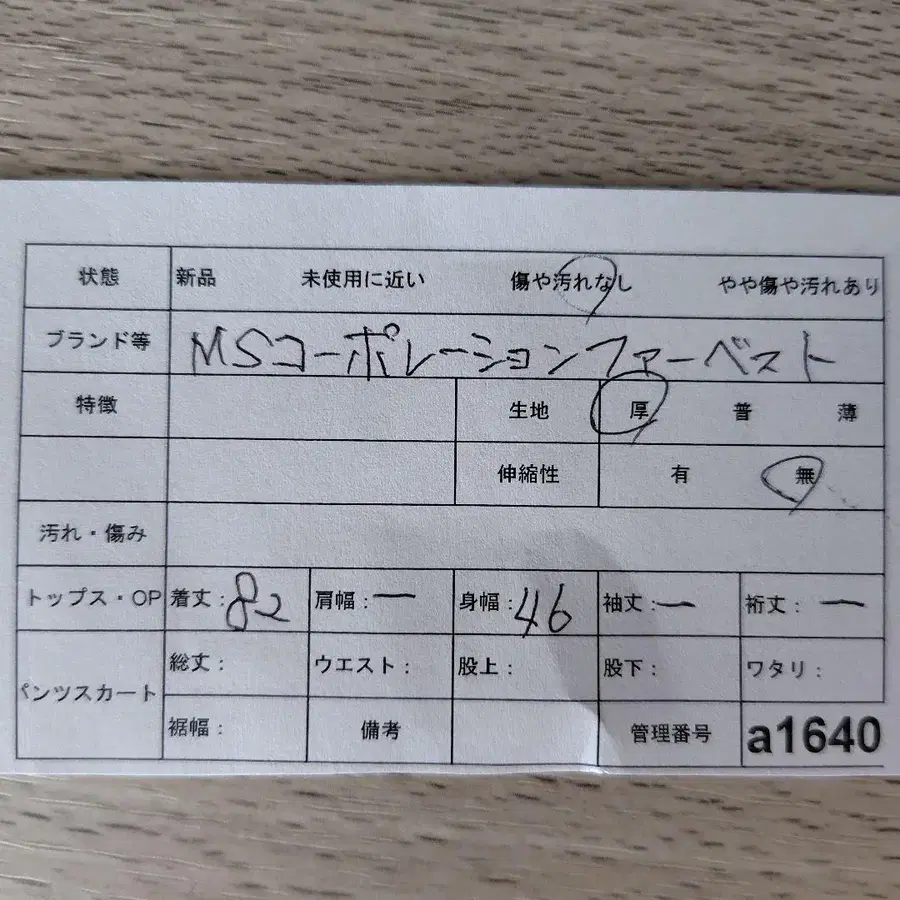 状態 新品 未使用に近い 傷や汚れなし やや傷や汚れあり
ブランド等 MSコーポレーションファーベスト
特徴 生地 厚 普 薄
伸縮性 有 無
汚れ・傷み
トップス・OP 着丈:82 肩幅:ー 身幅:46 袖丈:ー 裄丈:ー
パンツスカート 総丈: ウエスト: 股上: 股下: ワタリ:
裾幅: 備考 管理番号 a1640